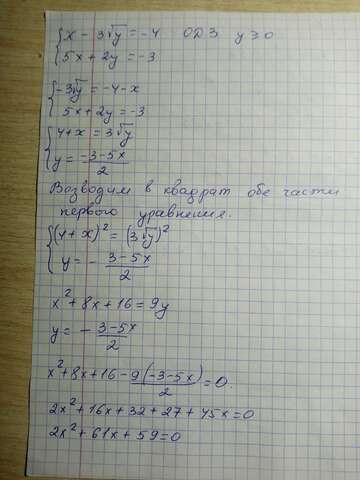 { x - 3√y = -4 ОДЗ y ≥ 0
5x + 2y = -3
{ -3√y = -4 - x
5x + 2y = -3
{ 4 + x = 3√y
y = -3-5x / 2
Возводим в квадрат обе части
первого уравнения.
{ (4 + x)² = (3√y)²
y = - 3-5x / 2
x² + 8x + 16 = 9y
y = - 3-5x / 2
x² + 8x + 16 - 9(-3-5x) / 2 = 0.
2x² + 16x + 32 + 27 + 45x = 0
2x² + 61x + 59 = 0